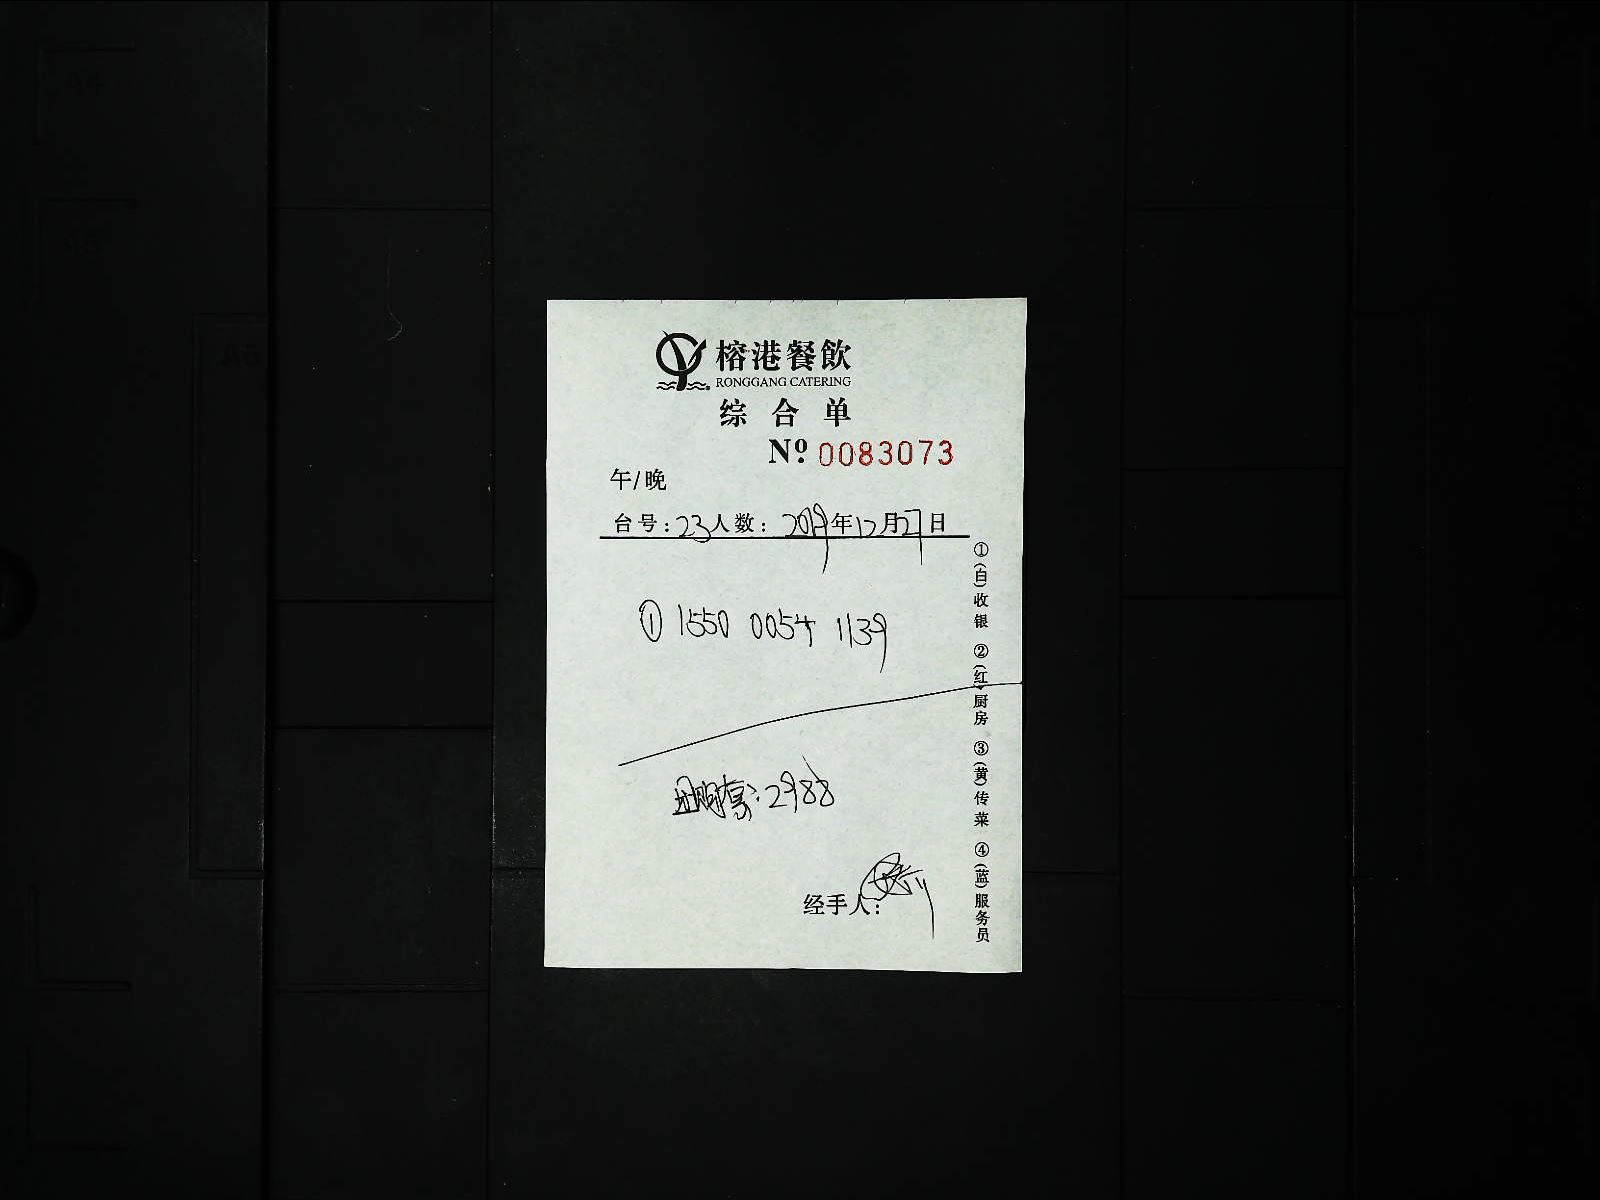 榕港餐飲
RONGGANG CATERING
综合单
Nº 0083073
午/晚
台号:23人数: 2019年12月27日
① 1550 0054 1139
团购套:2988
经手人:
①(白)收银 ②(红)厨房 ③(黄)传菜 ④(蓝)服务员